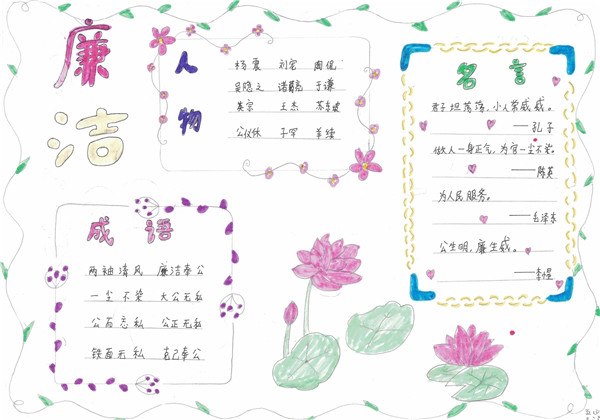 廉
洁
人
物
杨震 刘宠 陶侃
吴隐之 诸葛亮 于谦
王杰
公仪休 子罕 羊续
成语
两袖清风 廉洁奉公
一尘不染 大公无私
公而忘私 公正无私
铁面无私 克己奉公
名言
君子坦荡荡，小人常戚戚。
——孔子
做人一身正气，为官一尘不染。
——陈英
为人民服务。
——毛泽东
公生明，廉生威。
——李惺